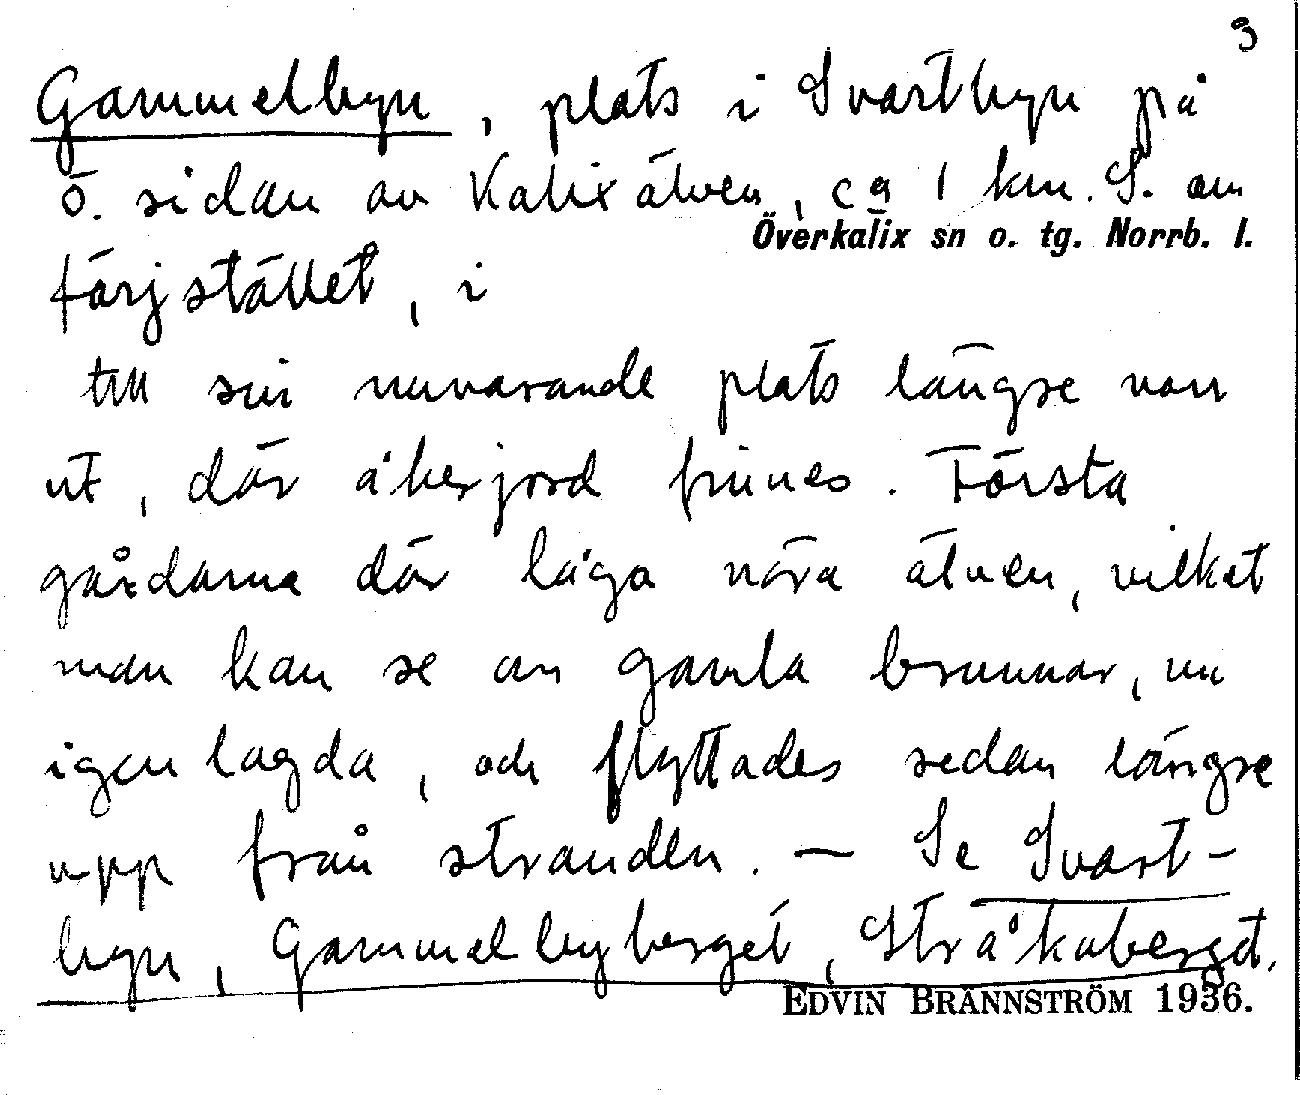 3
Gammelbyn, plats i Svartbyn på
ö. sidan av Kalixälven, ca 1 km. S. om
Överkalix sn o. tg. Norrb. l.
färjstället, i
till sin nuvarande plats längre norr
ut, där åkerjord finnes. Första
gårdarna där låga nära älven, vilket
man kan se av gamla brunnar, nu
igenlagda, och flyttades sedan längre
upp från stranden. – Se Svart-
byn, Gammelbyberget, Stråkaberget.
EDVIN BRÄNNSTRÖM 1936.